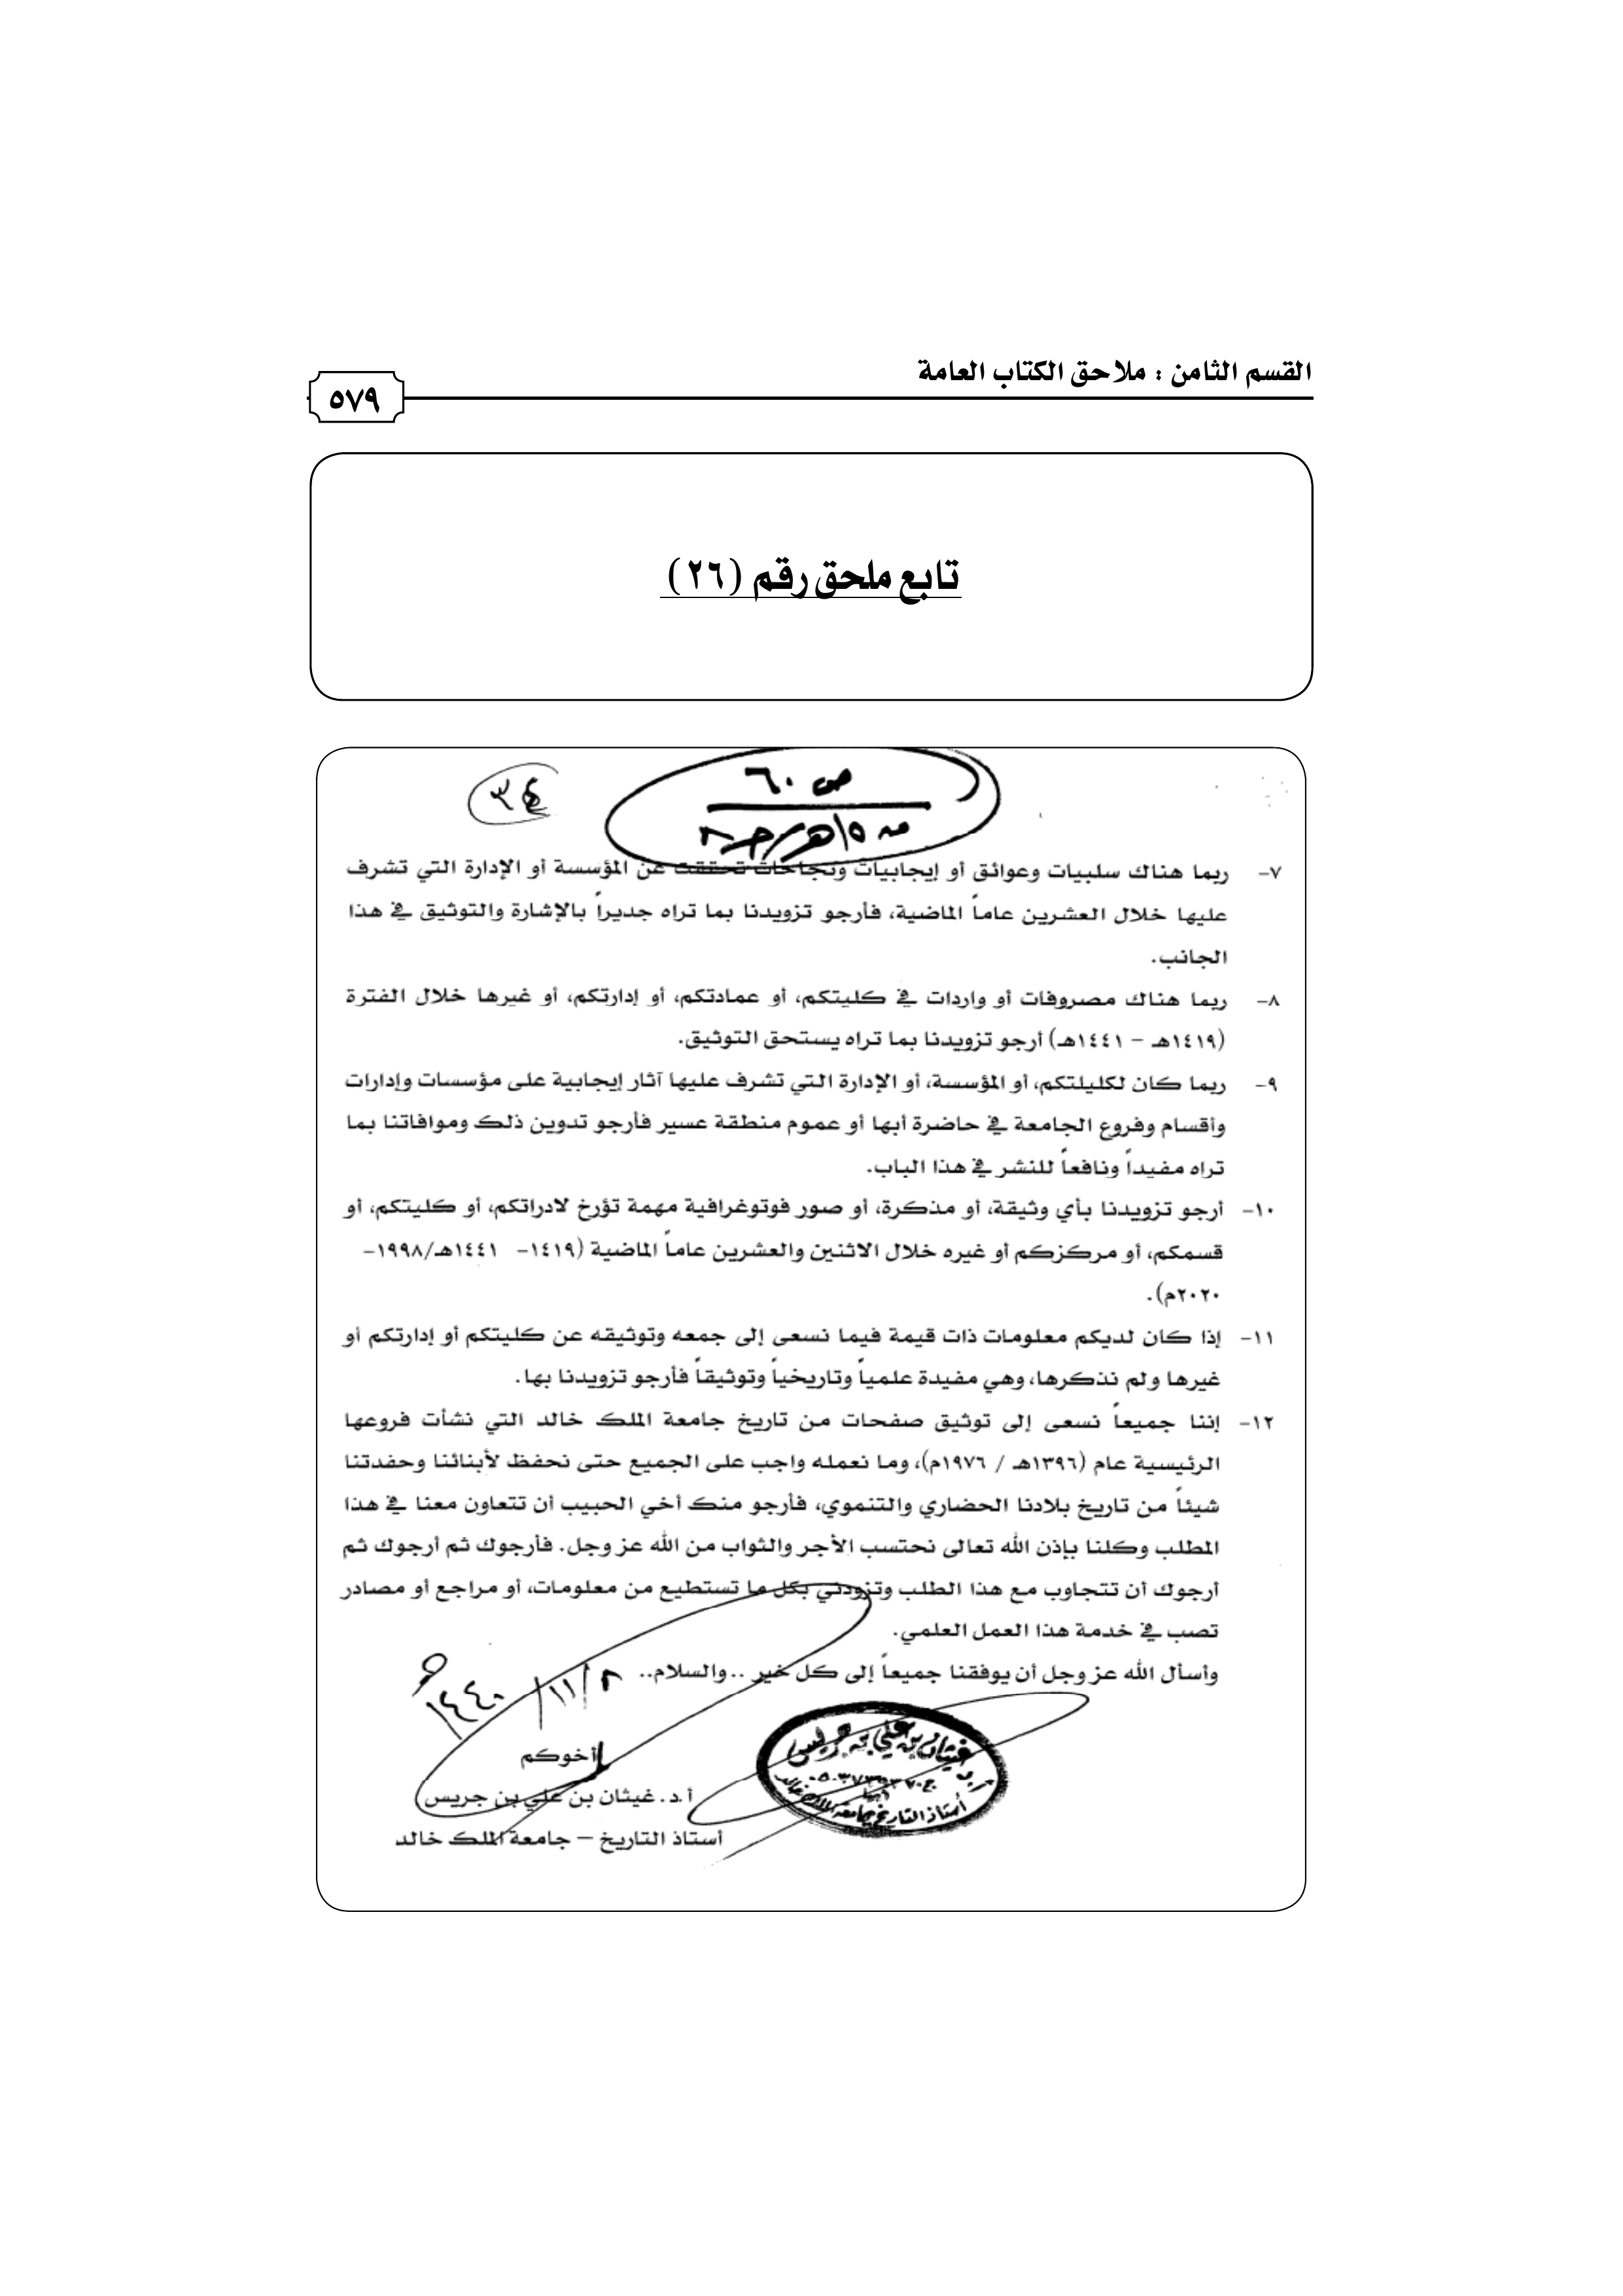 القسم الثامن : ملاحق الكتاب العامة
٥٧٩
تابع ملحق رقم (٢٦)
ص ٦٠
٣٤
٧- ربما هناك سلبيات وعوائق أو إيجابيات ونجاحات تحققت عن المؤسسة أو الإدارة التي تشرف
عليها خلال العشرين عاماً الماضية، فأرجو تزويدنا بما تراه جديراً بالإشارة والتوثيق في هذا
الجانب.
٨- ربما هناك مصروفات أو واردات في كليتكم، أو عمادتكم، أو إدارتكم، أو غيرها خلال الفترة
(١٤١٩هـ – ١٤٤١هـ) أرجو تزويدنا بما تراه يستحق التوثيق.
٩- ربما كان لكليلتكم، أو المؤسسة، أو الإدارة التي تشرف عليها آثار إيجابية على مؤسسات وإدارات
وأقسام وفروع الجامعة في حاضرة أبها أو عموم منطقة عسير فأرجو تدوين ذلك وموافاتنا بما
تراه مفيداً ونافعاً للنشر في هذا الباب.
١٠- أرجو تزويدنا بأي وثيقة، أو مذكرة، أو صور فوتوغرافية مهمة تؤرخ لادراتكم، أو كليتكم، أو
قسمكم، أو مركزكم أو غيره خلال الاثنين والعشرين عاماً الماضية (١٤١٩- ١٤٤١هـ/١٩٩٨-
٢٠٢٠م).
١١- إذا كان لديكم معلومات ذات قيمة فيما نسعى إلى جمعه وتوثيقه عن كليتكم أو إدارتكم أو
غيرها ولم نذكرها، وهي مفيدة علمياً وتاريخياً وتوثيقاً فأرجو تزويدنا بها.
١٢- إننا جميعاً نسعى إلى توثيق صفحات من تاريخ جامعة الملك خالد التي نشأت فروعها
الرئيسية عام (١٣٩٦هـ / ١٩٧٦م)، وما نعمله واجب على الجميع حتى نحفظ لأبنائنا وحفدتنا
شيئاً من تاريخ بلادنا الحضاري والتنموي، فأرجو منك أخي الحبيب أن تتعاون معنا في هذا
المطلب وكلنا بإذن الله تعالى نحتسب الأجر والثواب من الله عز وجل. فأرجوك ثم أرجوك ثم
أرجوك أن تتجاوب مع هذا الطلب وتزودني بكل ما تستطيع من معلومات، أو مراجع أو مصادر
تصب في خدمة هذا العمل العلمي.
وأسأل الله عز وجل أن يوفقنا جميعاً إلى كل خير ..والسلام..
٨/١١/١٤٤٠هـ
أخوكم
أ.د. غيثان بن علي بن جريس
أستاذ التاريخ – جامعة الملك خالد
غيثان بن علي بن جريس
أبها
أستاذ التاريخ بجامعة الملك خالد